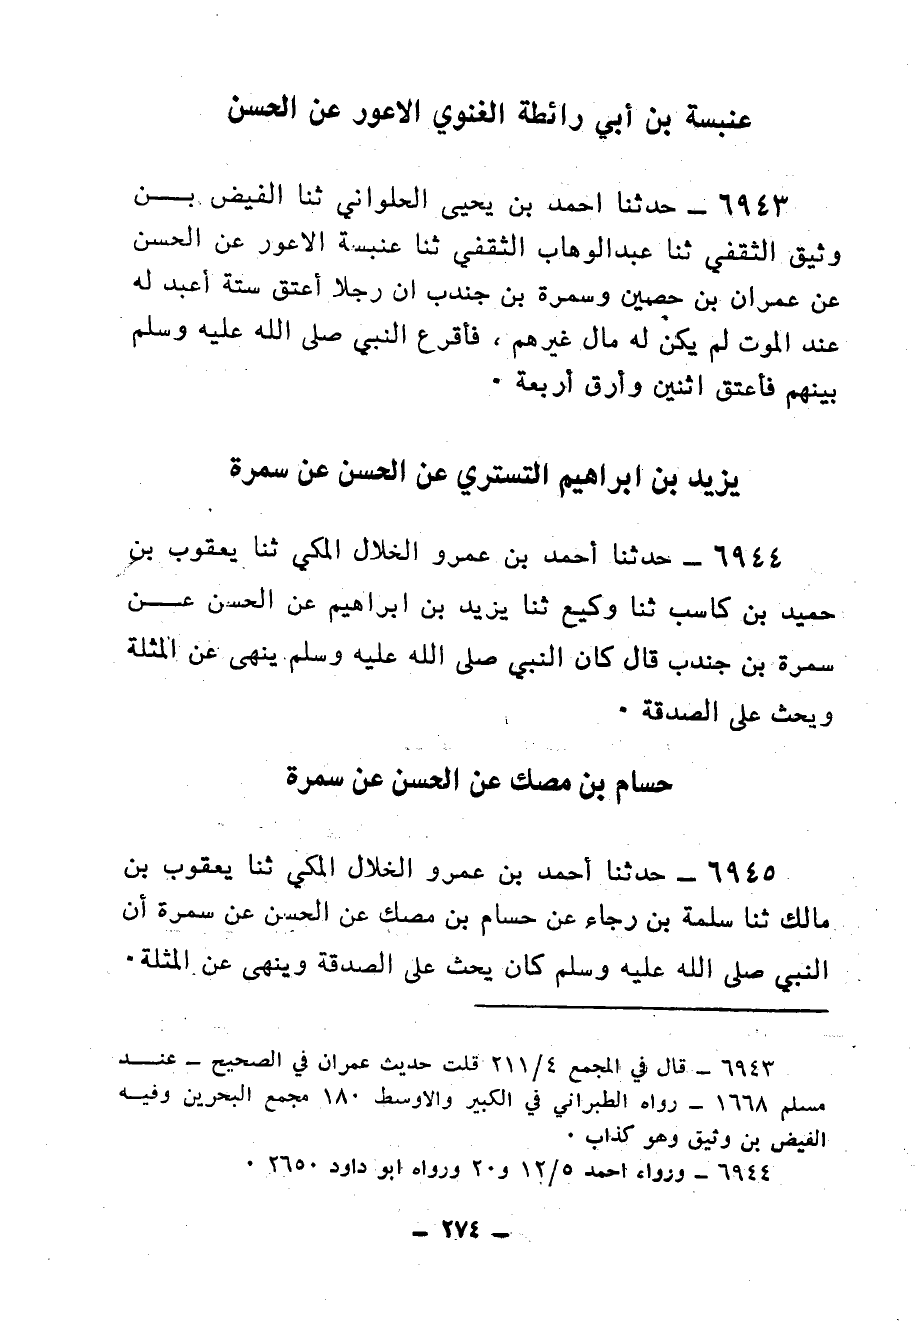 عنبسة بن أبي رائطة الغنوي الاعور عن الحسن
٦٩٤٣ ــ حدثنا احمد بن يحيى الحلواني ثنا الفيض بــن
وثيق الثقفي ثنا عبدالوهاب الثقفي ثنا عنبسة الاعور عن الحسن
عن عمران بن حصين وسمرة بن جندب ان رجلا أعتق ستة أعبد له
عند الموت لم يكن له مال غيرهم ، فأقرع النبي صلى الله عليه وسلم
بينهم فأعتق اثنين وأرق أربعة ٠
يزيد بن ابراهيم التستري عن الحسن عن سمرة
٦٩٤٤ ــ حدثنا أحمد بن عمرو الخلال المكي ثنا يعقوب بن
حميد بن كاسب ثنا وكيع ثنا يزيد بن ابراهيم عن الحسن عــن
سمرة بن جندب قال كان النبي صلى الله عليه وسلم ينهى عن المثلة
ويحث على الصدقة ٠
حسام بن مصك عن الحسن عن سمرة
٦٩٤٥ ــ حدثنا أحمد بن عمرو الخلال المكي ثنا يعقوب بن
مالك ثنا سلمة بن رجاء عن حسام بن مصك عن الحسن عن سمرة أن
النبي صلى الله عليه وسلم كان يحث على الصدقة وينهى عن المثلة٠
٦٩٤٣ ــ قال في المجمع ٢١١/٤ قلت حديث عمران في الصحيح ــ عنــد
مسلم ١٦٦٨ ــ رواه الطبراني في الكبير والاوسط ١٨٠ مجمع البحرين وفيــه
الفيض بن وثيق وهو كذاب ٠
٦٩٤٤ ــ ورواه احمد ١٢/٥ و٢٠ ورواه ابو داود ٢٦٥٠ ٠
ــ ٢٧٤ ــ